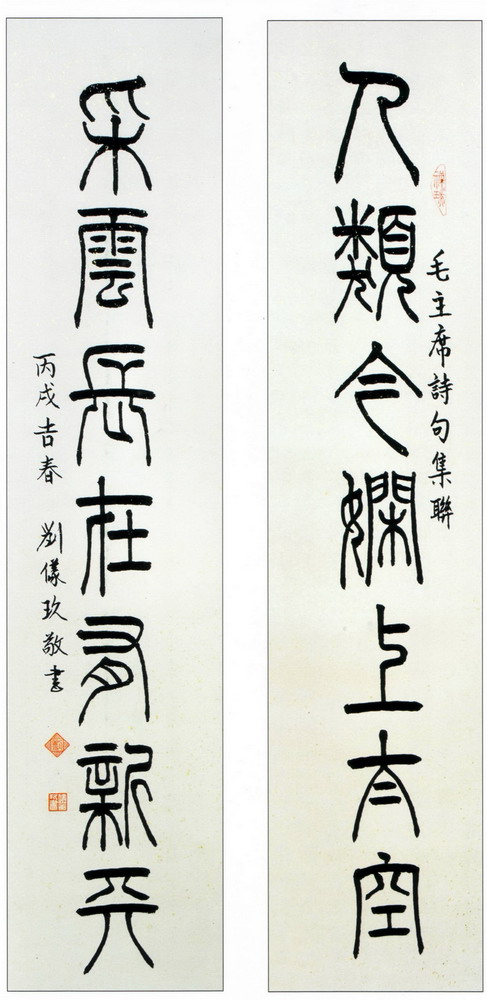 毛主席詩句集聯
人類今嫻上太空
采雲長在有新天
丙戌吉春 劉儀玖敬書